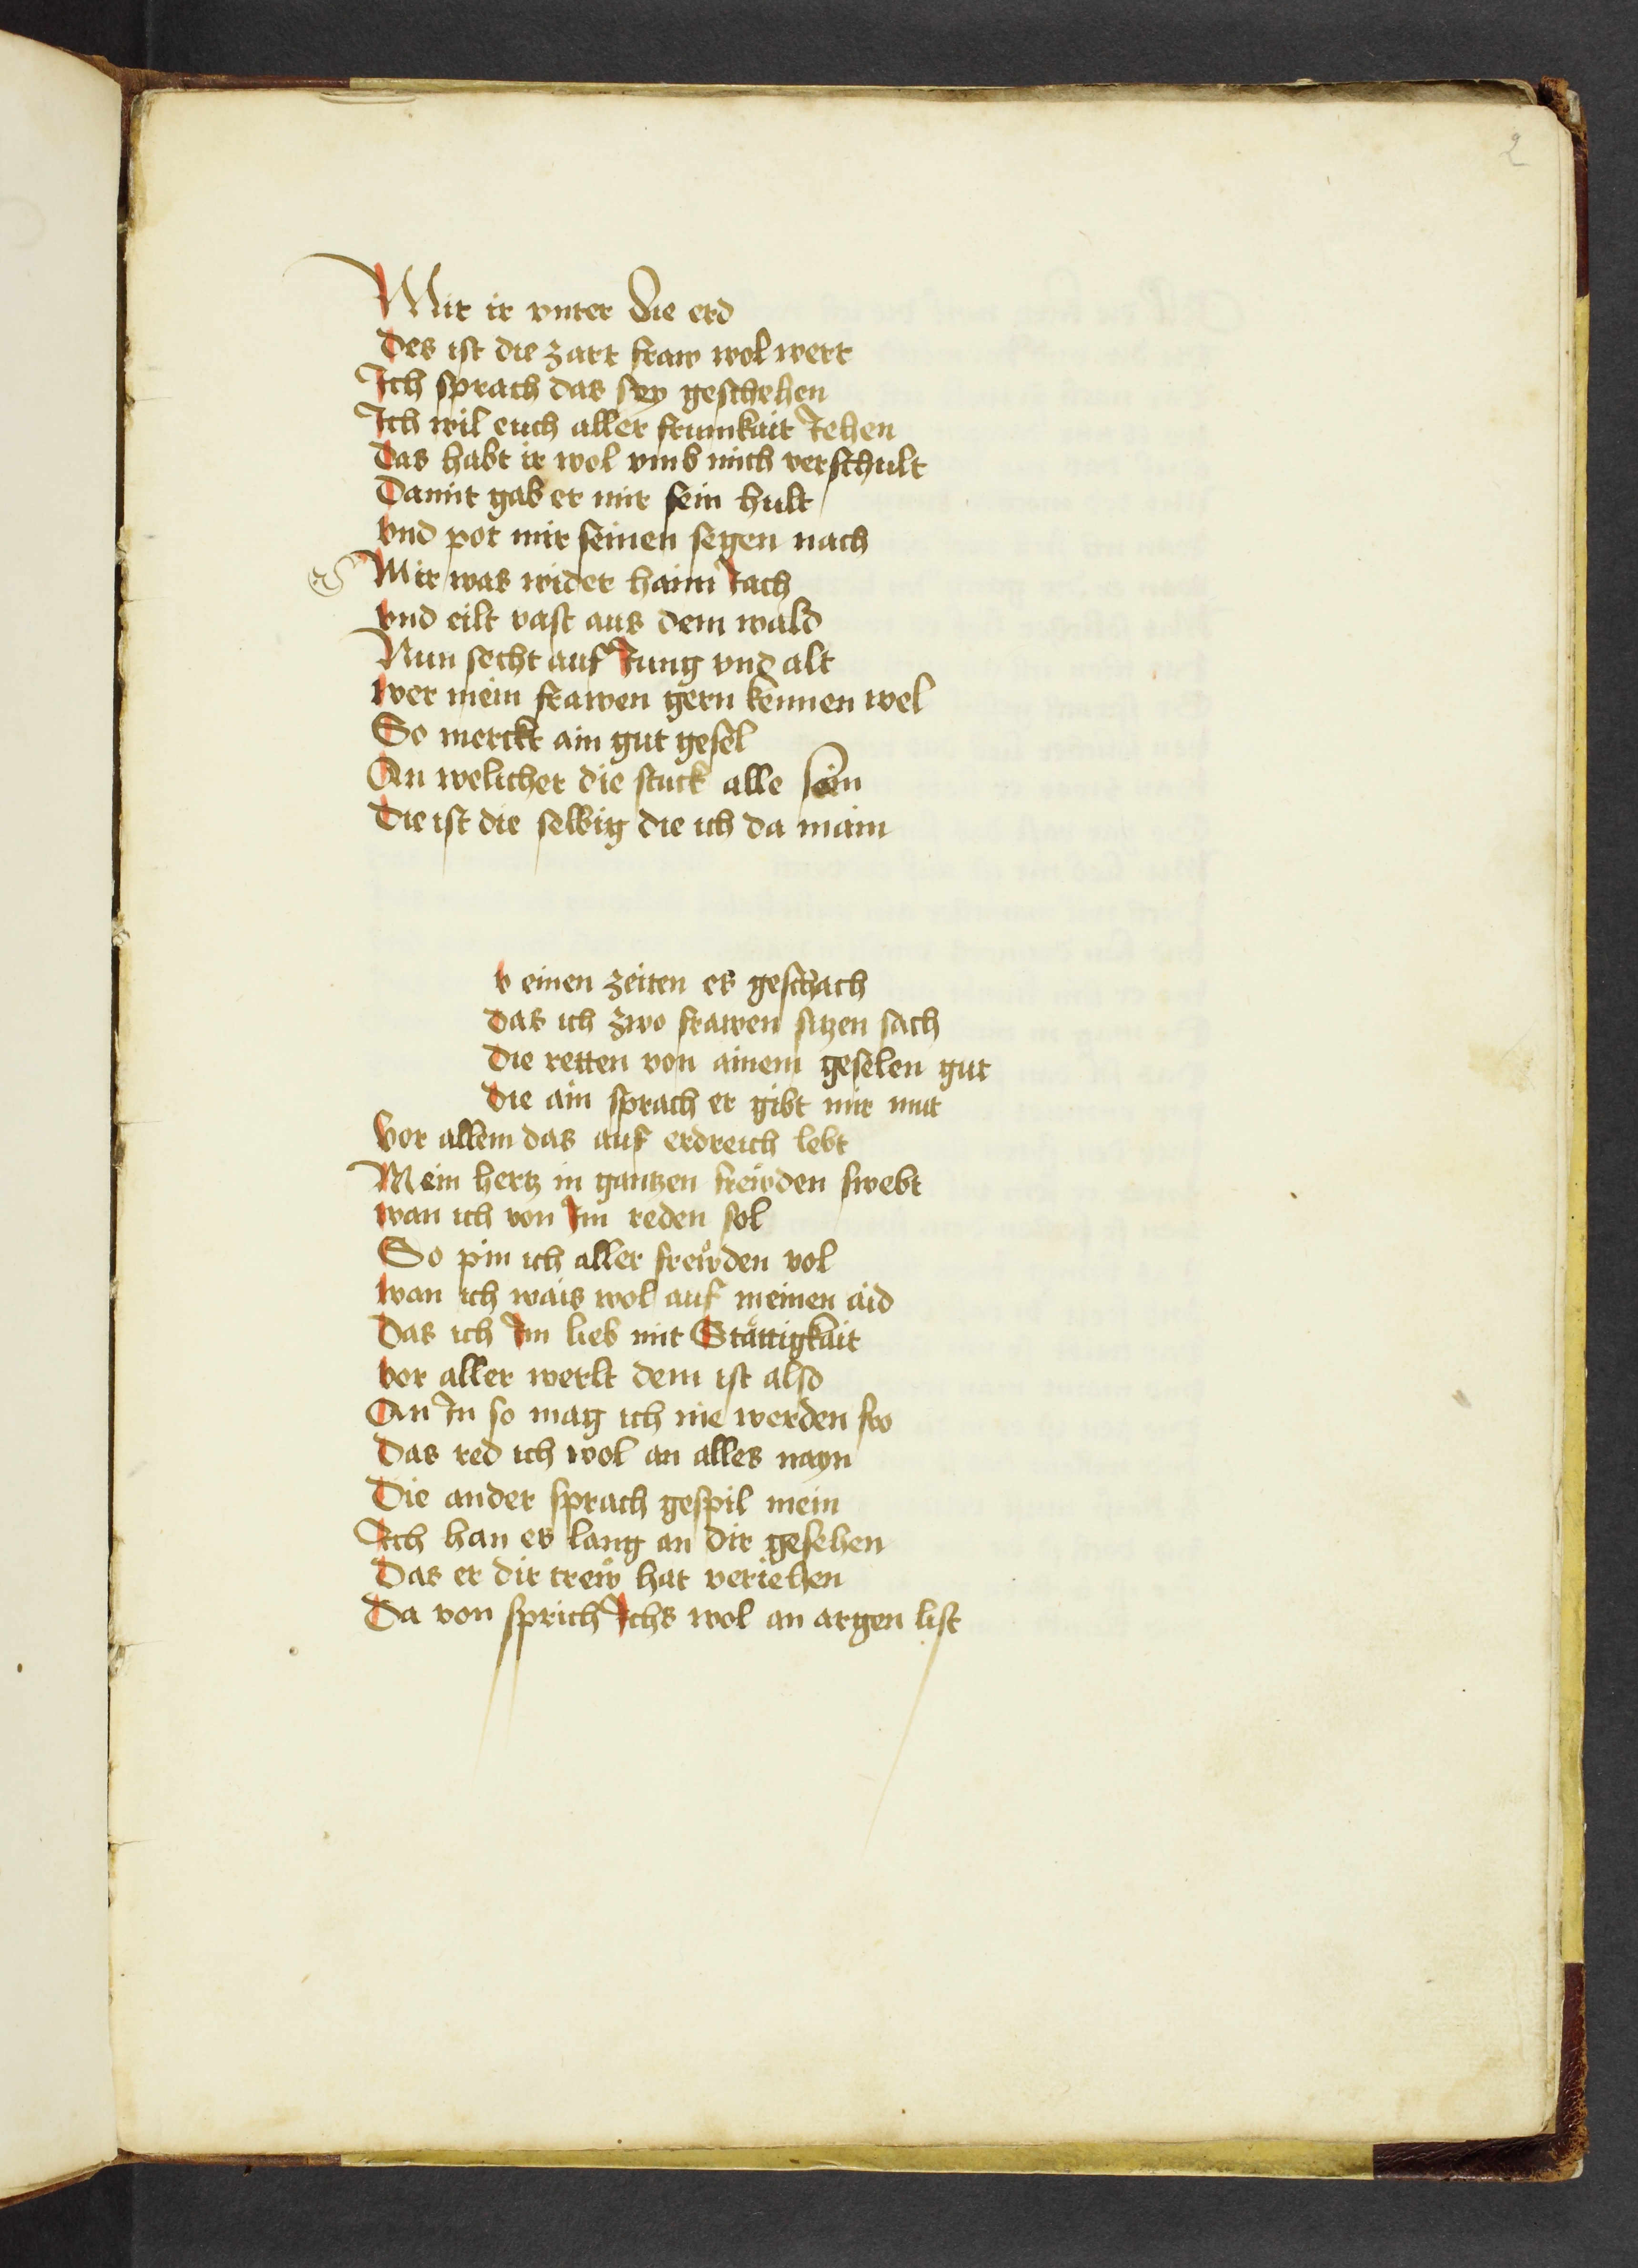 2
Mit ir vnter die erd
Des ist die zart fraw wol wert
Ich sprach das sey geschehen
Ich wil euch aller frumkait Jehen
Das habt ir wol vmb mich verschult
Damit gab er mir sein hult
vnd pot mir seinen segen nach
Mir was wider haim Jach
vnd eilt vast aus dem wald
Nun secht auf Jung vnd alt
wer mein frawen gern kennen wel
So merckt ain gut gesel
An welicher die stuck alle sein
Die ist die selbig die ich da main
v einen zeiten es geschach
Das ich zwo frawen sitzen sach
Die retten von ainem geselen gut
Die ain sprach er gibt mir mut
Vor allem das auf erdreich lebt
Mein hertz in gantzen frewden swebt
wan ich von Im reden sol
So pin ich aller frewden vol
wan ich wais wol auf meinen aid
Das ich Im lieb mit Stättigkait
vor aller werlt dem ist also
An In so mag ich nie werden fro
Das red ich wol an alles nayn
Die ander sprach gespil mein
Ich han es lang an dir gesehen
Das er dir trew hat veriehen
Da von sprich Ichs wol an argen list